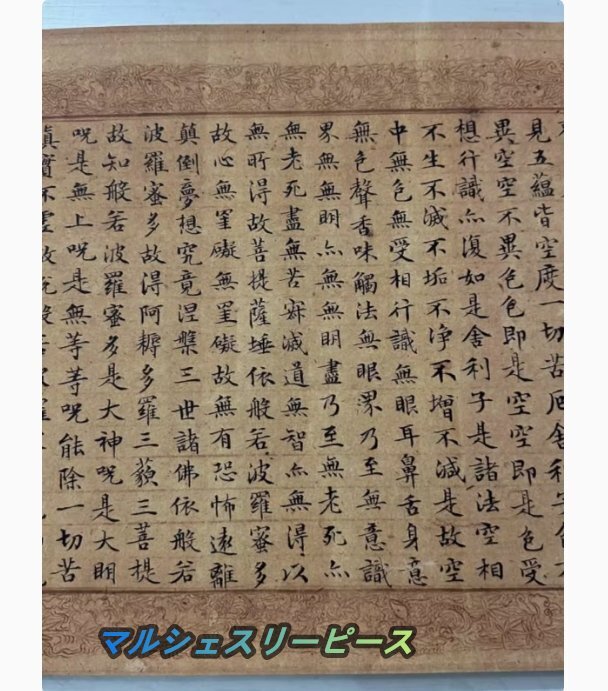 見五蘊皆空度一切苦厄舍利子色不
異空空不異色色即是空空即是色受
想行識亦復如是舍利子是諸法空相
不生不滅不垢不淨不增不減是故空
中無色無受相行識無眼耳鼻舌身意
無色聲香味觸法無眼界乃至無意識
界無無明亦無無明盡乃至無老死亦
無老死盡無苦寂滅道無智亦無得以
無所得故菩提薩埵依般若波羅蜜多
故心無罣礙無罣礙故無有恐怖遠離
顛倒夢想究竟涅槃三世諸佛依般若
波羅蜜多故得阿耨多羅三藐三菩提
故知般若波羅蜜多是大神呪是大明
呪是無上呪是無等等呪能除一切苦
真實不虛故說般若波羅
マルシェスリーピース